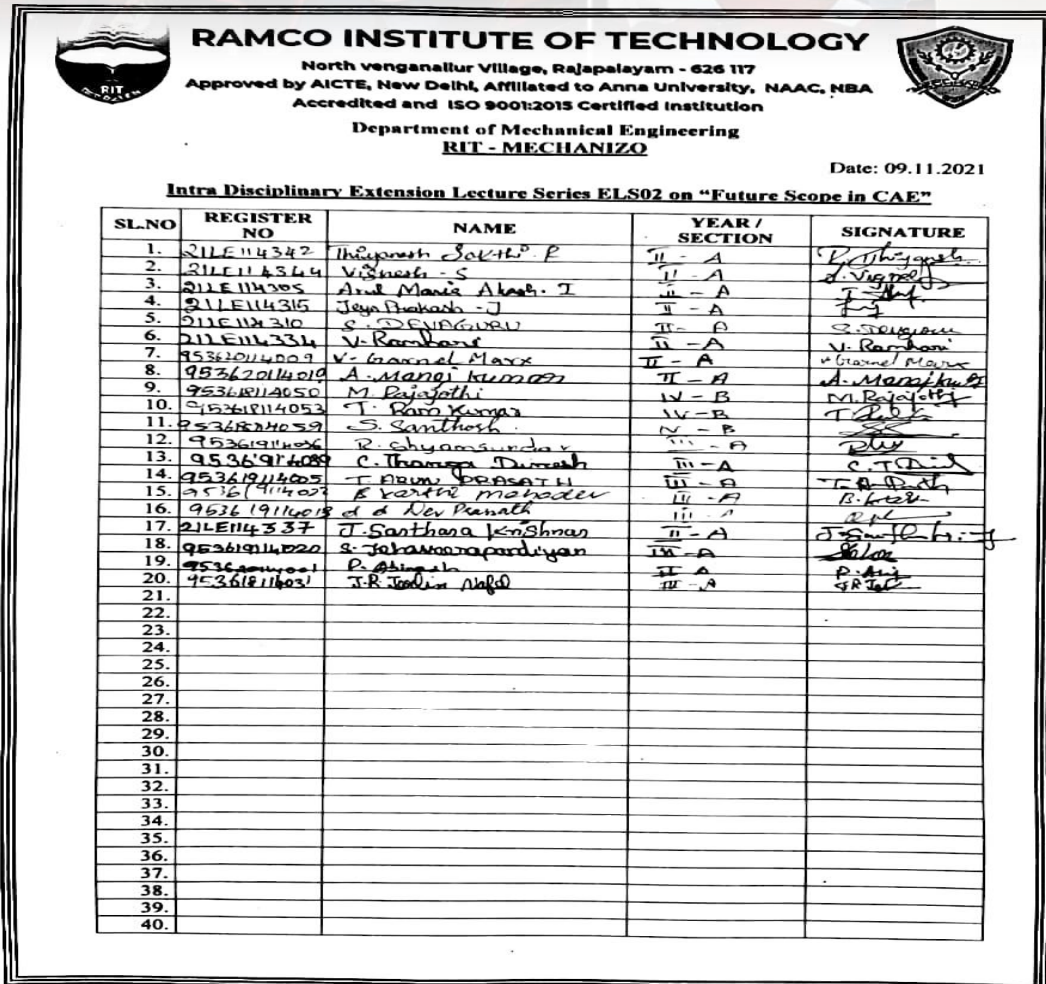 RIT
RAMCO INSTITUTE OF TECHNOLOGY
North venganallur Village, Rajapalayam - 626 117
Approved by AICTE, New Delhi, Affiliated to Anna University, NAAC, NBA
Accredited and ISO 9001:2015 Certified Institution
Department of Mechanical Engineering
RIT - MECHANIZO
Date: 09.11.2021
Intra Disciplinary Extension Lecture Series ELS02 on "Future Scope in CAE"
SL.NO REGISTER NO NAME YEAR / SECTION SIGNATURE
1. 21LE114342 Sakthi P II - A
2. 21LE114344 Vignesh - S II - A
3. 21LE114305 Arul Maria Akash. I II - A
4. 21LE114315 Jeya Prakash - J II - A
5. 21LE114310 S. DEVAGURU II - A
6. 21LE114334 V. Ramhari II - A V. Ramhari
7. 953620114009 V. Marx II - A Marx
8. 953620114019 A. Manoj Kumar II - A
9. 953618114050 M. Rajajothi IV - B M. Rajajothi
10. 953618114053 T. Ram Kumar IV - B
11. 953618114059 S. Santhosh IV - B
12. 953619114036 R. Shyamsundar III - A
13. C. Thanga Dinesh III - A
14. 953619114005 T ARUN PRASATH III - A
15. B Karthi mahadev III - A
16. Dev Pranath III - A
17. 21LE114337 J. Santhana Krishnan II - A
18. 953619114020 III - A
19. P. Abinesh II A
20. J.R. III - A
21.
22.
23.
24.
25.
26.
27.
28.
29.
30.
31.
32.
33.
34.
35.
36.
37.
38.
39.
40.